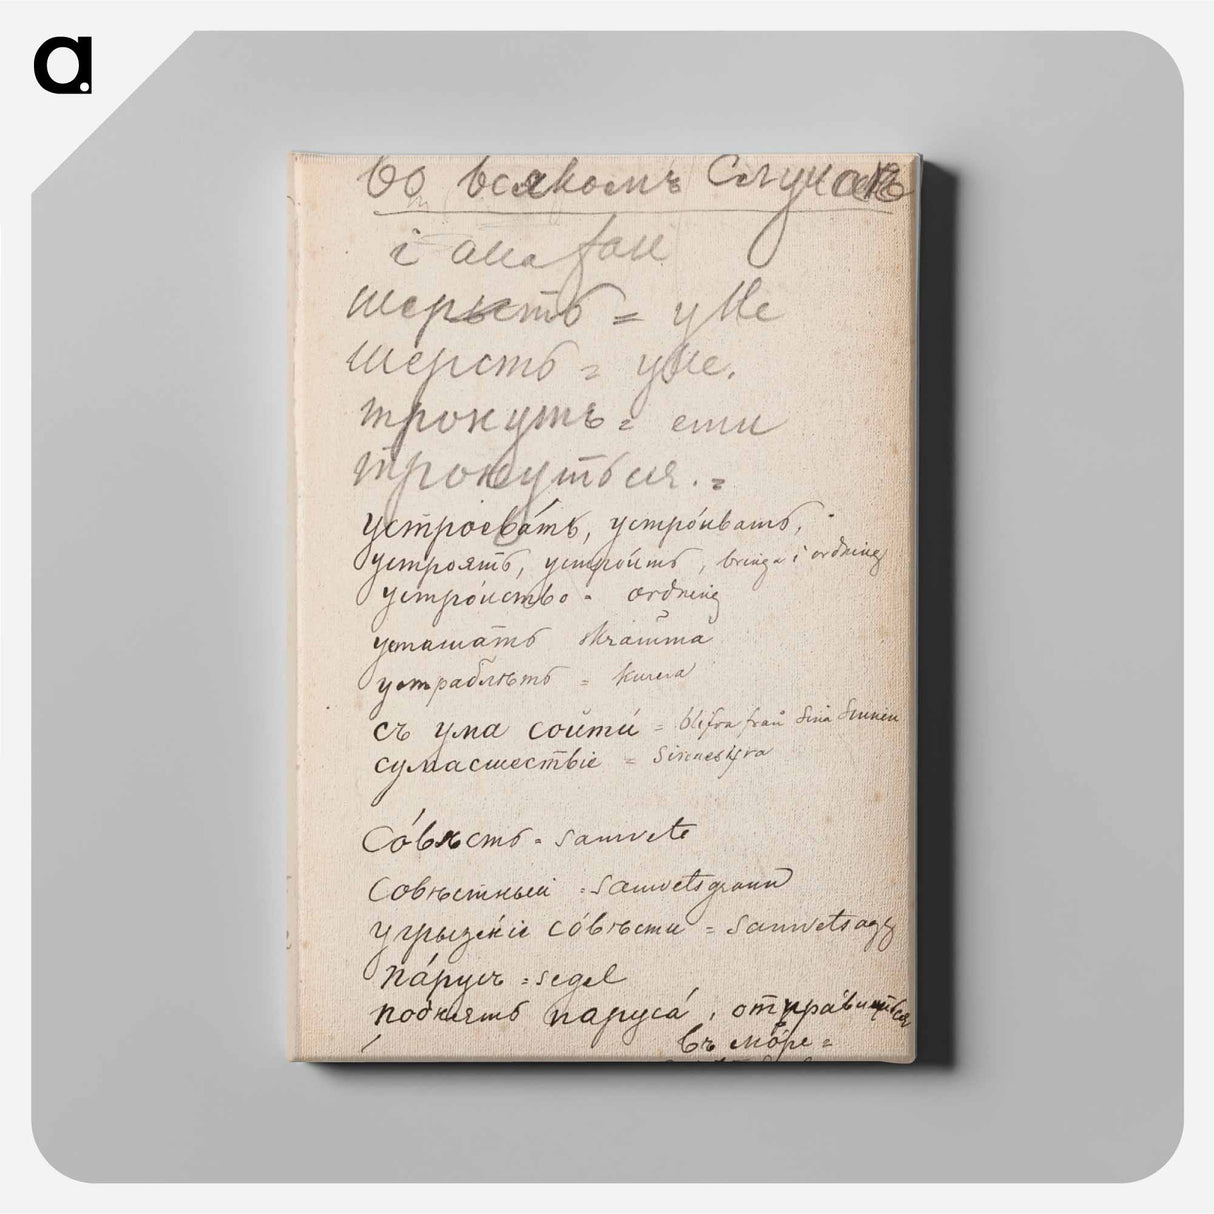 a.
Во всякомъ Случаѣ
i alla fall
шерыть = ylle
шерсть = ylle.
тронуть =
тронуться. =
устроевать, устро́ивать,
устроять, устро́ить, bringa i ordning
устро́иство = ordning
усташать skrämma
устраблѣть = kurera
съ ума сойти́ = blifva från sina Sinnen
сумасшествіе =
Со́вѣсть = samvete
Совѣстный = samvetsgrann
угрызе́ніе со́вѣсти = samvetsagg
па́русъ = segel
поднять паруса́, отправиться
въ мо́ре =